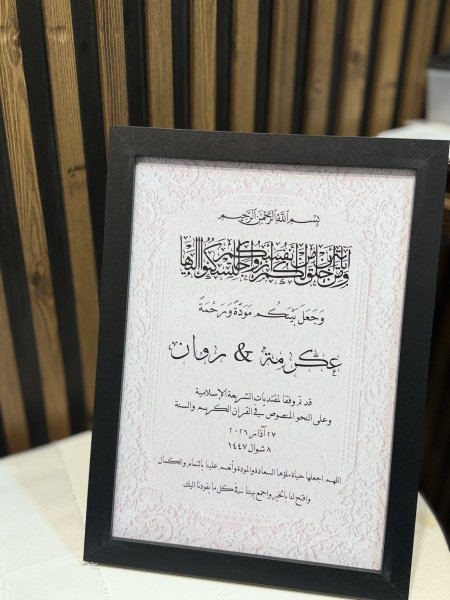 بسم الله الرحمن الرحيم
ومن آياته أن خلق لكم من أنفسكم أزواجا لتسكنوا إليها
وَجَعَلَ بَيْنَكُم مَوَدَّةً وَرَحْمَةً
عكرمة & روان
قد تم وفقا لمقتضيات الشريعة الإسلامية
وعلى النحو المنصوص في القرآن الكريم والسنة
٢٧ آذار ٢٠٢٦
٨ شوال ١٤٤٧
اللهم اجعلها حياة ملؤها السعادة والمودة وأنعم علينا بالتمام والكمال
وافتح لنا بالخير واجمع بيننا في كل ما يقودنا اليك